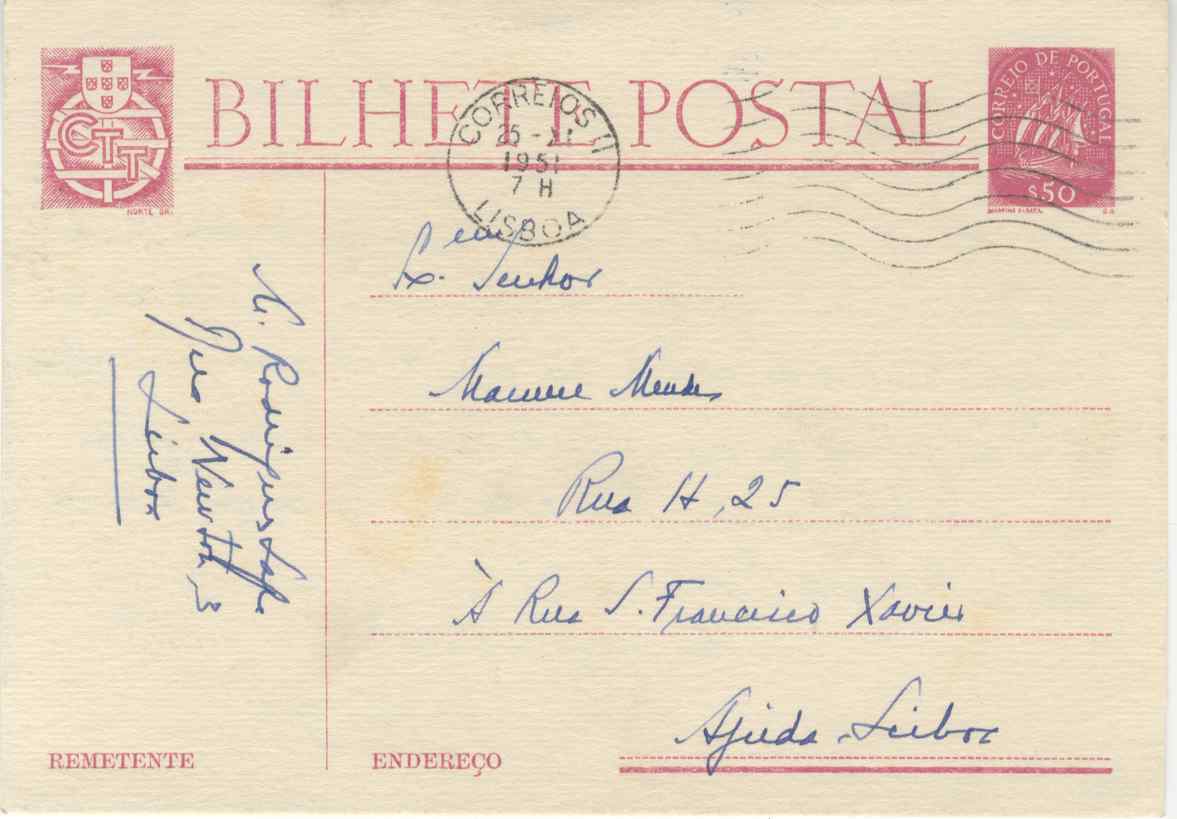 CTT
NORTE GR.
BILHETE POSTAL
CORREIO DE PORTUGAL
$50
CORREIOS II
25 - XI
1951
7 H
LISBOA
Exmº. Senhor
Manuel Mendes
Rua H, 25
À Rua S. Francisco Xavier
Ajuda - Lisboa
M. Rodrigues Lapa
Rua Newton, 3
Lisboa
REMETENTE
ENDEREÇO